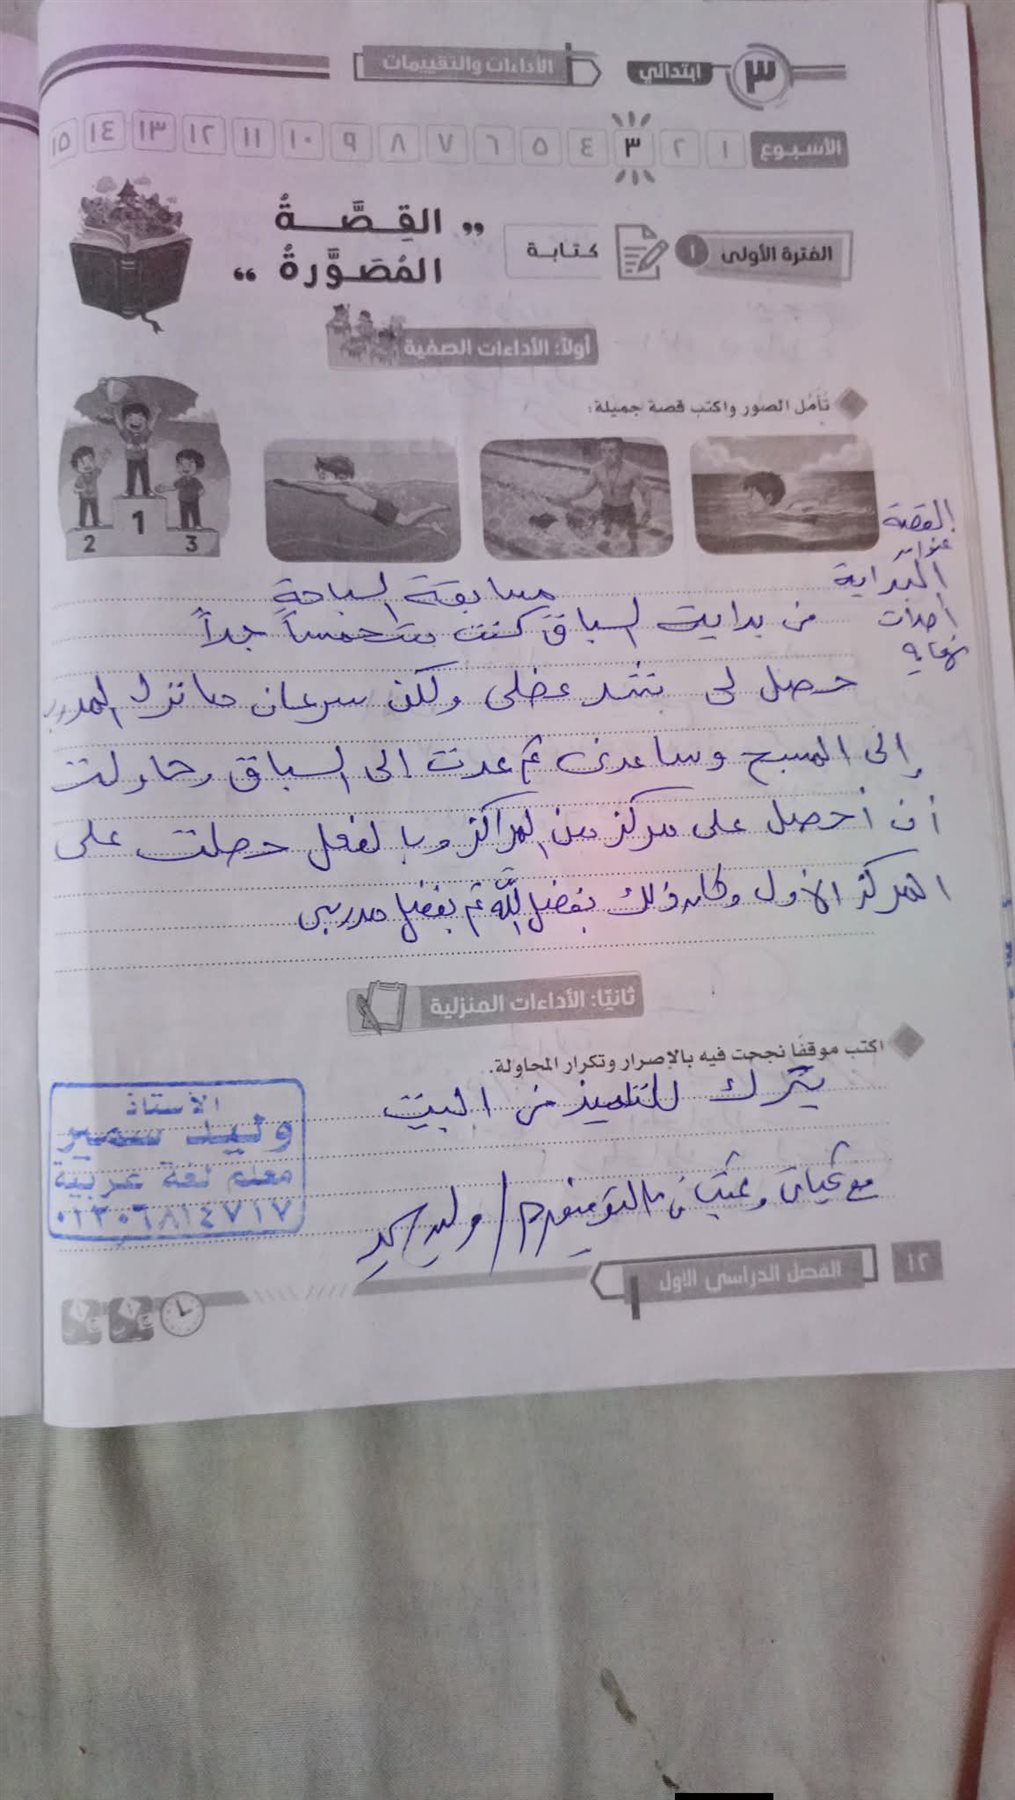 ٣ ابتدائي
الأداءات والتقييمات
الأسبوع ١ ٢ ٣ ٤ ٥ ٦ ٧ ٨ ٩ ١٠ ١١ ١٢ ١٣ ١٤ ١٥
الفترة الأولى ١ كتابة
" القِصَّةُ
المُصَوَّرةُ "
أولاً: الأداءات الصفية
تأمل الصور واكتب قصة جميلة:
1
2
3
القصة
عنوان
البداية
أحداث
نهاية
مسابقة السباحة
في بدايت السباق كنت متحمساً جداً
حصل لى شد عضلى ولكن سرعان ما نزل المدرب
إلى المسبح وساعدنى ثم عدت إلى السباق وحاولت
أن أحصل على مركز من المراكز وبالفعل حصلت على
المركز الأول وكان ذلك بفضل الله ثم بفضل مدربى
ثانيًا: الأداءات المنزلية
اكتب موقفًا نجحت فيه بالإصرار وتكرار المحاولة.
يترك للتلميذ فى البيت
مع تحياتى وتمنياتى بالتوفيق م/ وليد سمير
الاستاذ
وليد سمير
معلم لغة عربية
٠١٢٠٦٨١٤٧١٧
الفصل الدراسى الأول
١٢